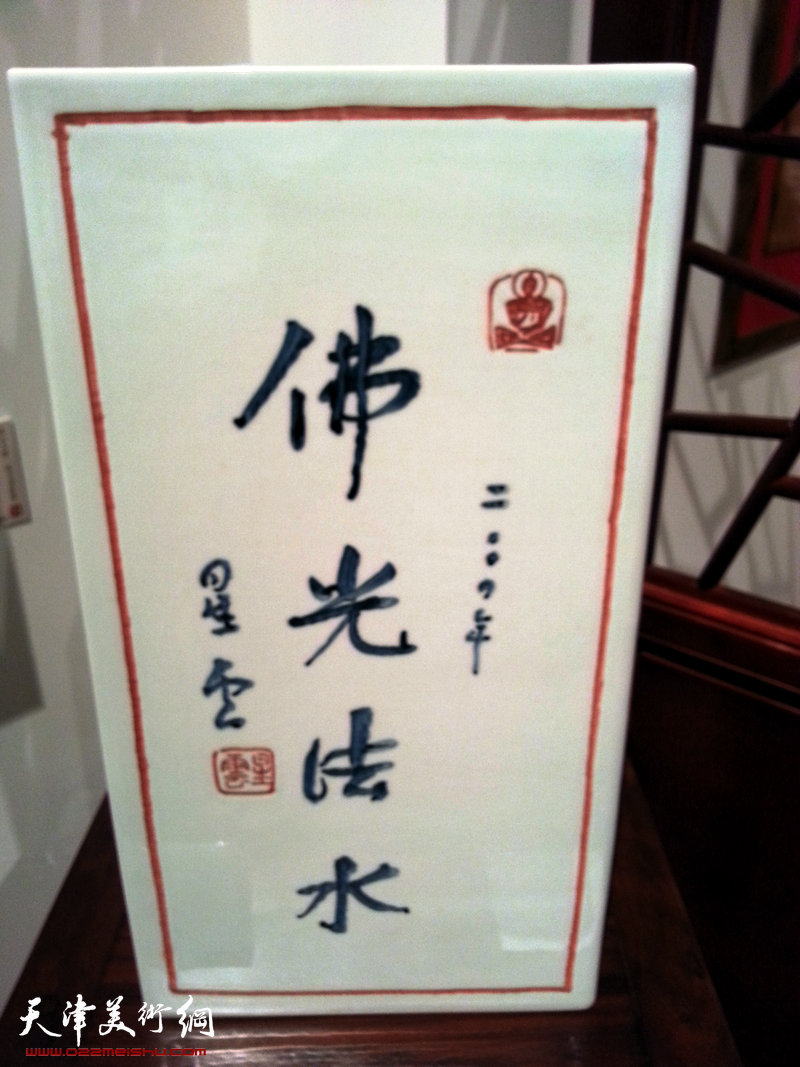 二〇〇九年
佛光法水
星雲
星雲
天津美術網
www.022meishu.com